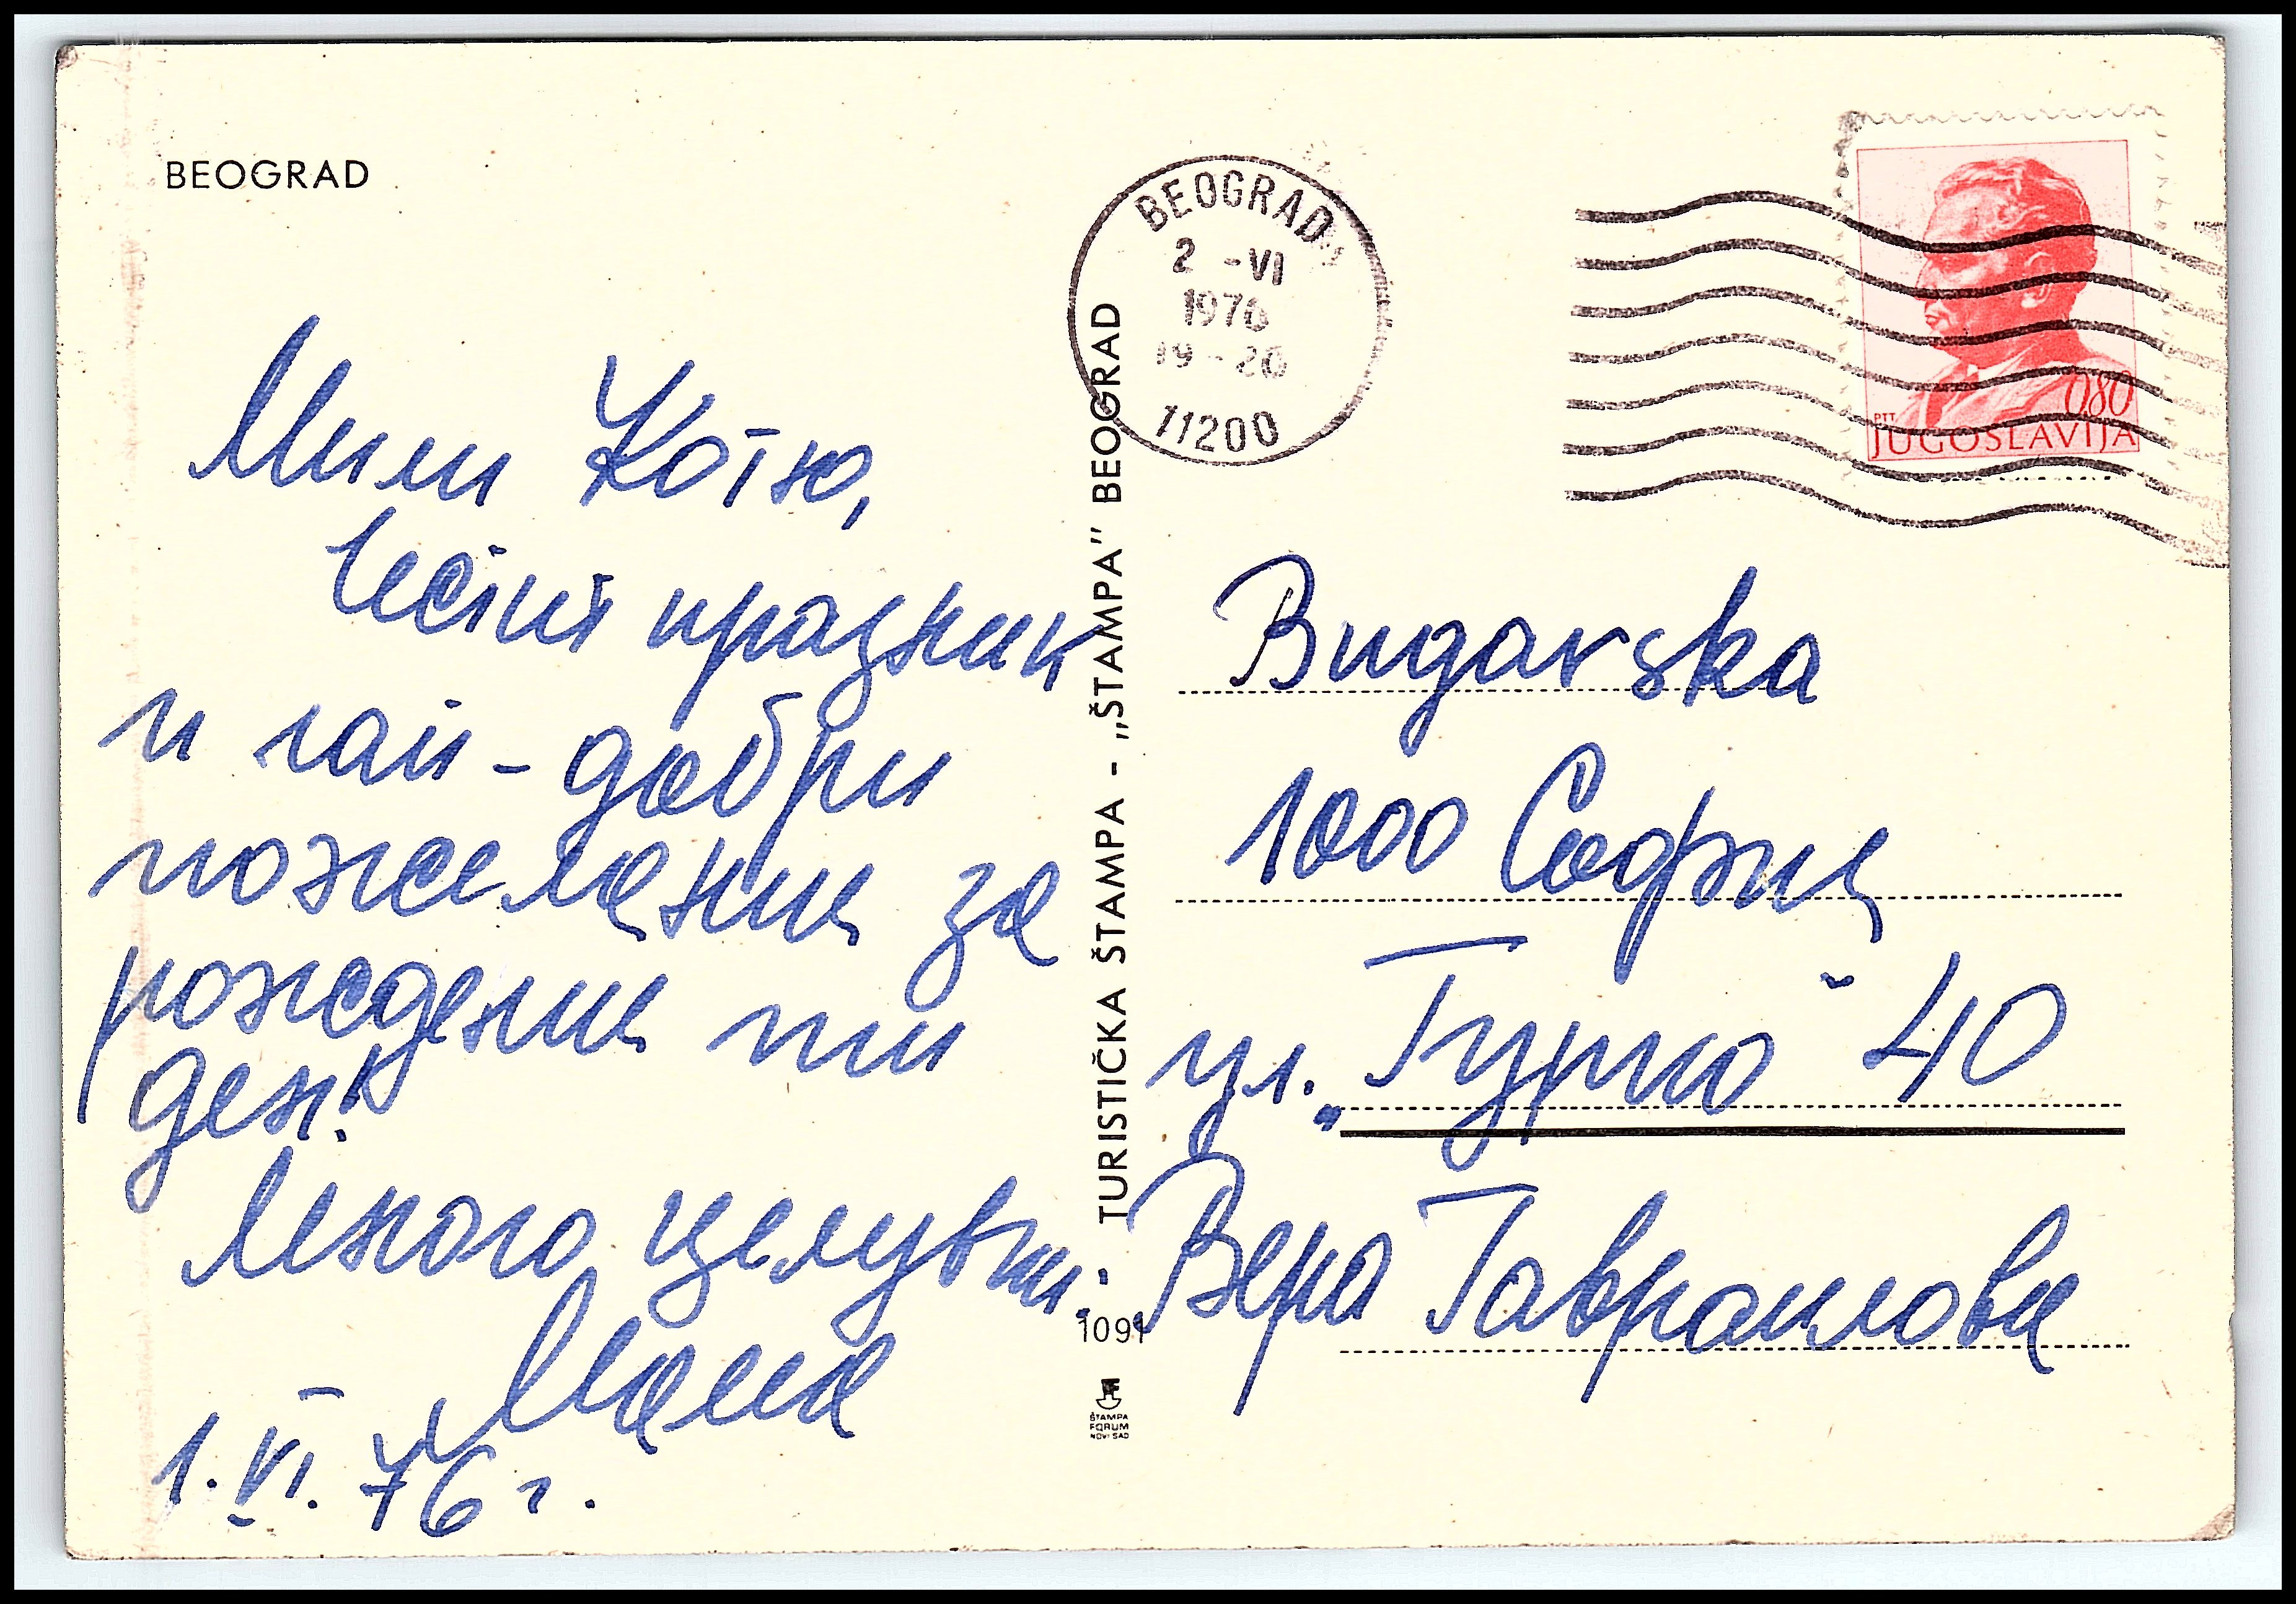 BEOGRAD
Мили Котю,
Честит празник
и най-добри
пожелания за
рождения ти
ден!
Много целувки.
Маня
1.VI.76 г.
TURISTIČKA ŠTAMPA - „ŠTAMPA” BEOGRAD
1091
ŠTAMPA
FORUM
NOVI SAD
BEOGRAD
2 -VI
1976
19-20
11200
080
PTT
JUGOSLAVIJA
Bugarska
1000 София
ул. „Гурко" 40
Вера Гавраилова